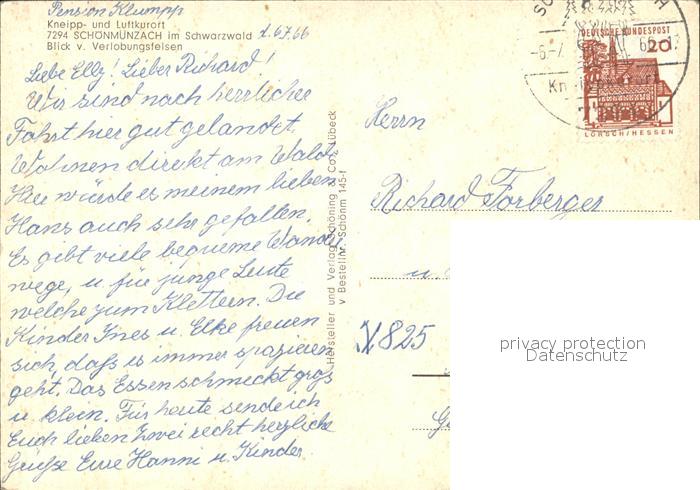 Pension Klumpp
Kneipp- und Luftkurort
7294 SCHÖNMÜNZACH im Schwarzwald
Blick v. Verlobungsfelsen
Liebe Elly! Lieber Richard!
Wir sind nach herrlicher
Fahrt hier gut gelandet.
Wohnen direkt am Wald.
Hier würde es meinem lieben
Hans auch sehr gefallen.
Es gibt viele bequeme Wander
wege, u. für junge Leute
welche zum Klettern. Die
Kinder Ines u. Elke freuen
sich, daß es immer spazieren
geht. Das Essen schmeckt gros
u. klein. Für heute sende ich
Euch lieben zwei recht herzliche
Grüße Eure Hanni u. Kinder.
Hersteller und Verlag Schöning & Co., Lübeck
v Bestellnr. Schönm 145-f
DEUTSCHE BUNDESPOST
20
LORSCH/HESSEN
Herrn
Richard Forberger
u.
X825
privacy protection
Datenschutz